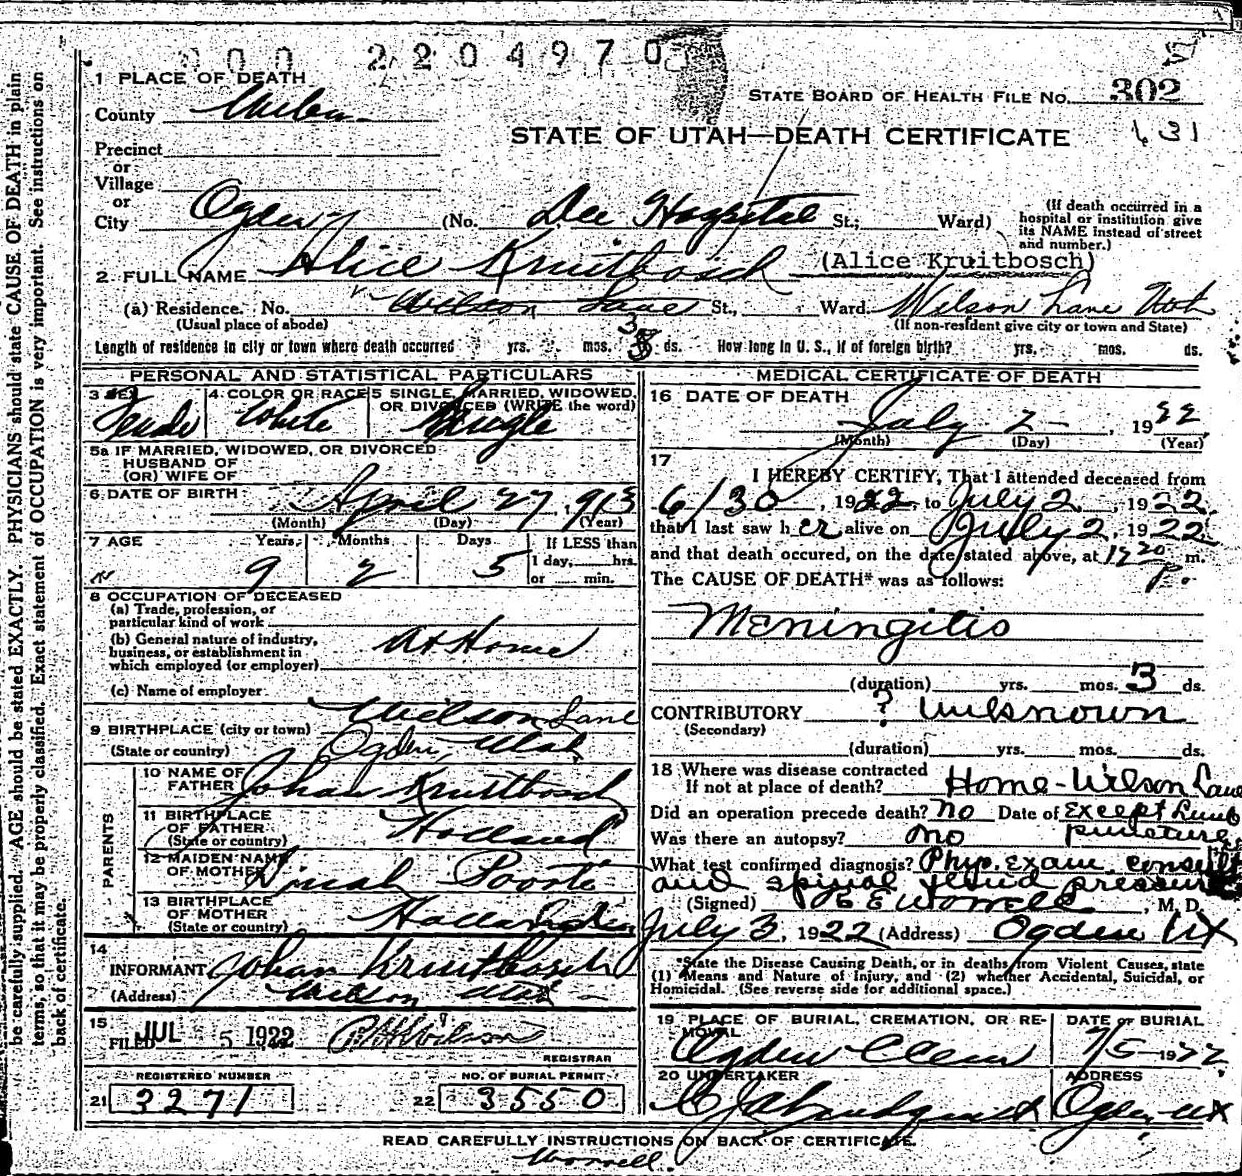 000 2204970
1 PLACE OF DEATH
STATE BOARD OF HEALTH FILE No. 302
County Weber
STATE OF UTAH—DEATH CERTIFICATE
131
Precinct
or
Village
or
City Ogden (No. Dee Hospital St.; Ward) (If death occurred in a hospital or institution give its NAME instead of street and number.)
2 FULL NAME Alice Kruitbosch (Alice Kruitbosch)
(a) Residence. No. Wilson Lane St., Ward. Wilson Lane Utah
(Usual place of abode) (If non-resident give city or town and State)
Length of residence in city or town where death occurred yrs. mos. 3 ds. How long in U. S., if of foreign birth? yrs. mos. ds.
PERSONAL AND STATISTICAL PARTICULARS
3 SEX 4 COLOR OR RACE 5 SINGLE, MARRIED, WIDOWED, OR DIVORCED (WRITE the word)
Female White Single
5a IF MARRIED, WIDOWED, OR DIVORCED
HUSBAND OF
(OR) WIFE OF
6 DATE OF BIRTH April 27, 1913
(Month) (Day) (Year)
7 AGE Years Months Days If LESS than
1 day, hrs.
9 2 5 or min.
8 OCCUPATION OF DECEASED
(a) Trade, profession, or
particular kind of work
(b) General nature of industry,
business, or establishment in
which employed (or employer) At Home
(c) Name of employer
9 BIRTHPLACE (city or town) Wilson Lane
(State or country) Ogden, Utah
PARENTS
10 NAME OF FATHER Johan Kruitbosch
11 BIRTHPLACE OF FATHER (State or country) Holland
12 MAIDEN NAME OF MOTHER Dinah Poorte
13 BIRTHPLACE OF MOTHER (State or country)
14
INFORMANT Johan Kruitbosch
(Address) Wilson Utah
15
FILED JUL 5 1922
REGISTRAR
REGISTERED NUMBER NO. OF BURIAL PERMIT
21 3271 22 3550
MEDICAL CERTIFICATE OF DEATH
16 DATE OF DEATH
July 2, 1922
(Month) (Day) (Year)
17
I HEREBY CERTIFY, That I attended deceased from
6/30, 1922, to July 2, 1922
that I last saw her alive on July 2, 1922
and that death occured, on the date stated above, at 1220 p. m.
The CAUSE OF DEATH* was as follows:
Meningitis
(duration) yrs. mos. 3 ds.
CONTRIBUTORY ? Unknown
(Secondary)
(duration) yrs. mos. ds.
18 Where was disease contracted
If not at place of death? Home-Wilson Lane
Did an operation precede death? No Date of Except Lumb
Was there an autopsy? No puncture
What test confirmed diagnosis? Phy. exam, consult
and spinal fluid pressure
(Signed) E Worrell, M. D.
July 3, 1922 (Address) Ogden Ut
*State the Disease Causing Death, or in deaths from Violent Causes, state
(1) Means and Nature of Injury, and (2) whether Accidental, Suicidal, or
Homicidal. (See reverse side for additional space.)
19 PLACE OF BURIAL, CREMATION, OR REMOVAL DATE OF BURIAL
Ogden Cem 7/5 1922
20 UNDERTAKER ADDRESS
Ogden, Ut
READ CAREFULLY INSTRUCTIONS ON BACK OF CERTIFICATE.
Worrell.
be carefully supplied. AGE should be stated EXACTLY. PHYSICIANS should state CAUSE OF DEATH in plain
terms, so that it may be properly classified. Exact statement of OCCUPATION is very important. See instructions on
back of certificate.